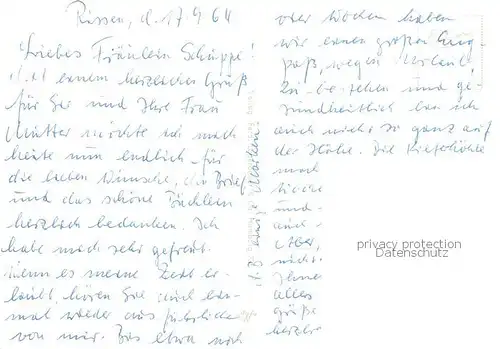 Rissen, d. 17.9.64
Liebes Fräulein Schüppe!
Mit einem herzlichen Gruß
für Sie und Ihre Frau
Mutter möchte ich mich
heute nun endlich für
die lieben Wünsche, den Brief
und das schöne Büchlein
herzlich bedanken. Ich
habe mich sehr gefreut.
Wenn es meine Zeit er-
laubt, hören Sie auch ein-
mal wieder ausführlicher
von mir. Bis etwa noch
oder Wochen haben
wir einen großen Eng-
paß, wegen Urlaub,
zu bestehen und ge-
sundheitlich bin ich
auch nicht so ganz auf
der Höhe. Die Kieferhöhle
mach
und
auch
Aber,
nicht
Ihnen
alles
grüße
herzlic
einige Marken
privacy protection
Datenschutz